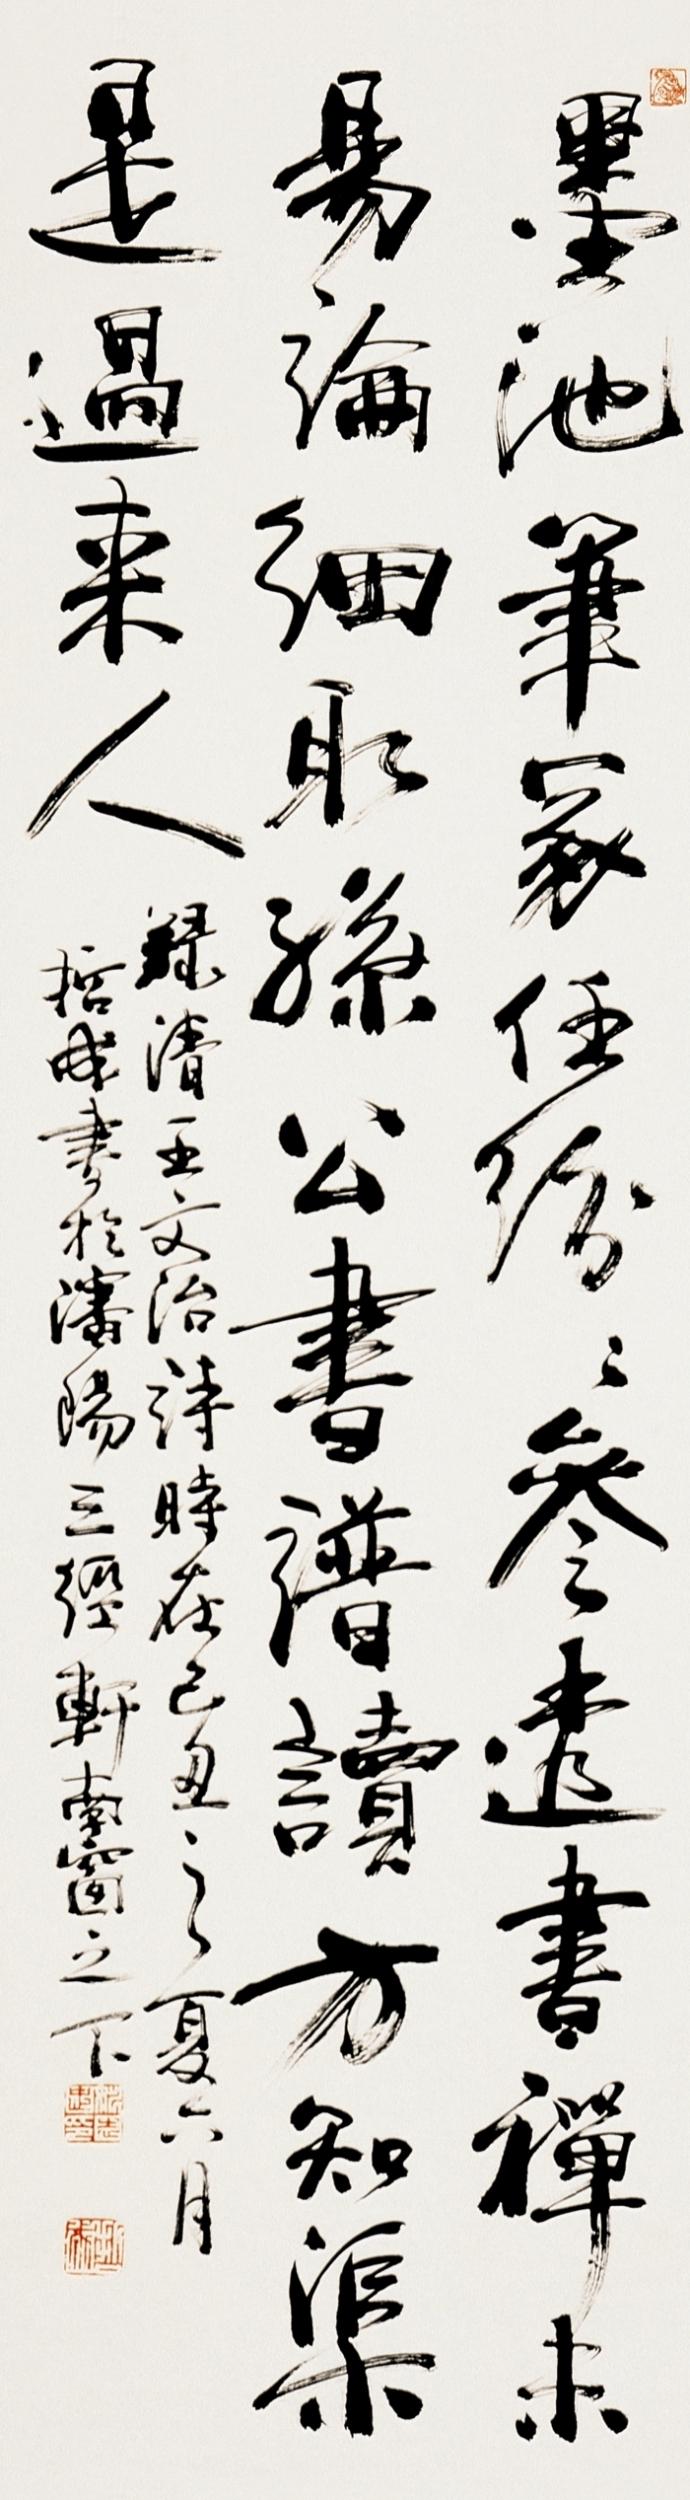 墨池筆冢任紛〻參透書禪未
易論細取孫公書譜讀方知渠
是過来人
録清王文治詩時在己丑之夏六月
哲成書於瀋陽三經軒南窗之下